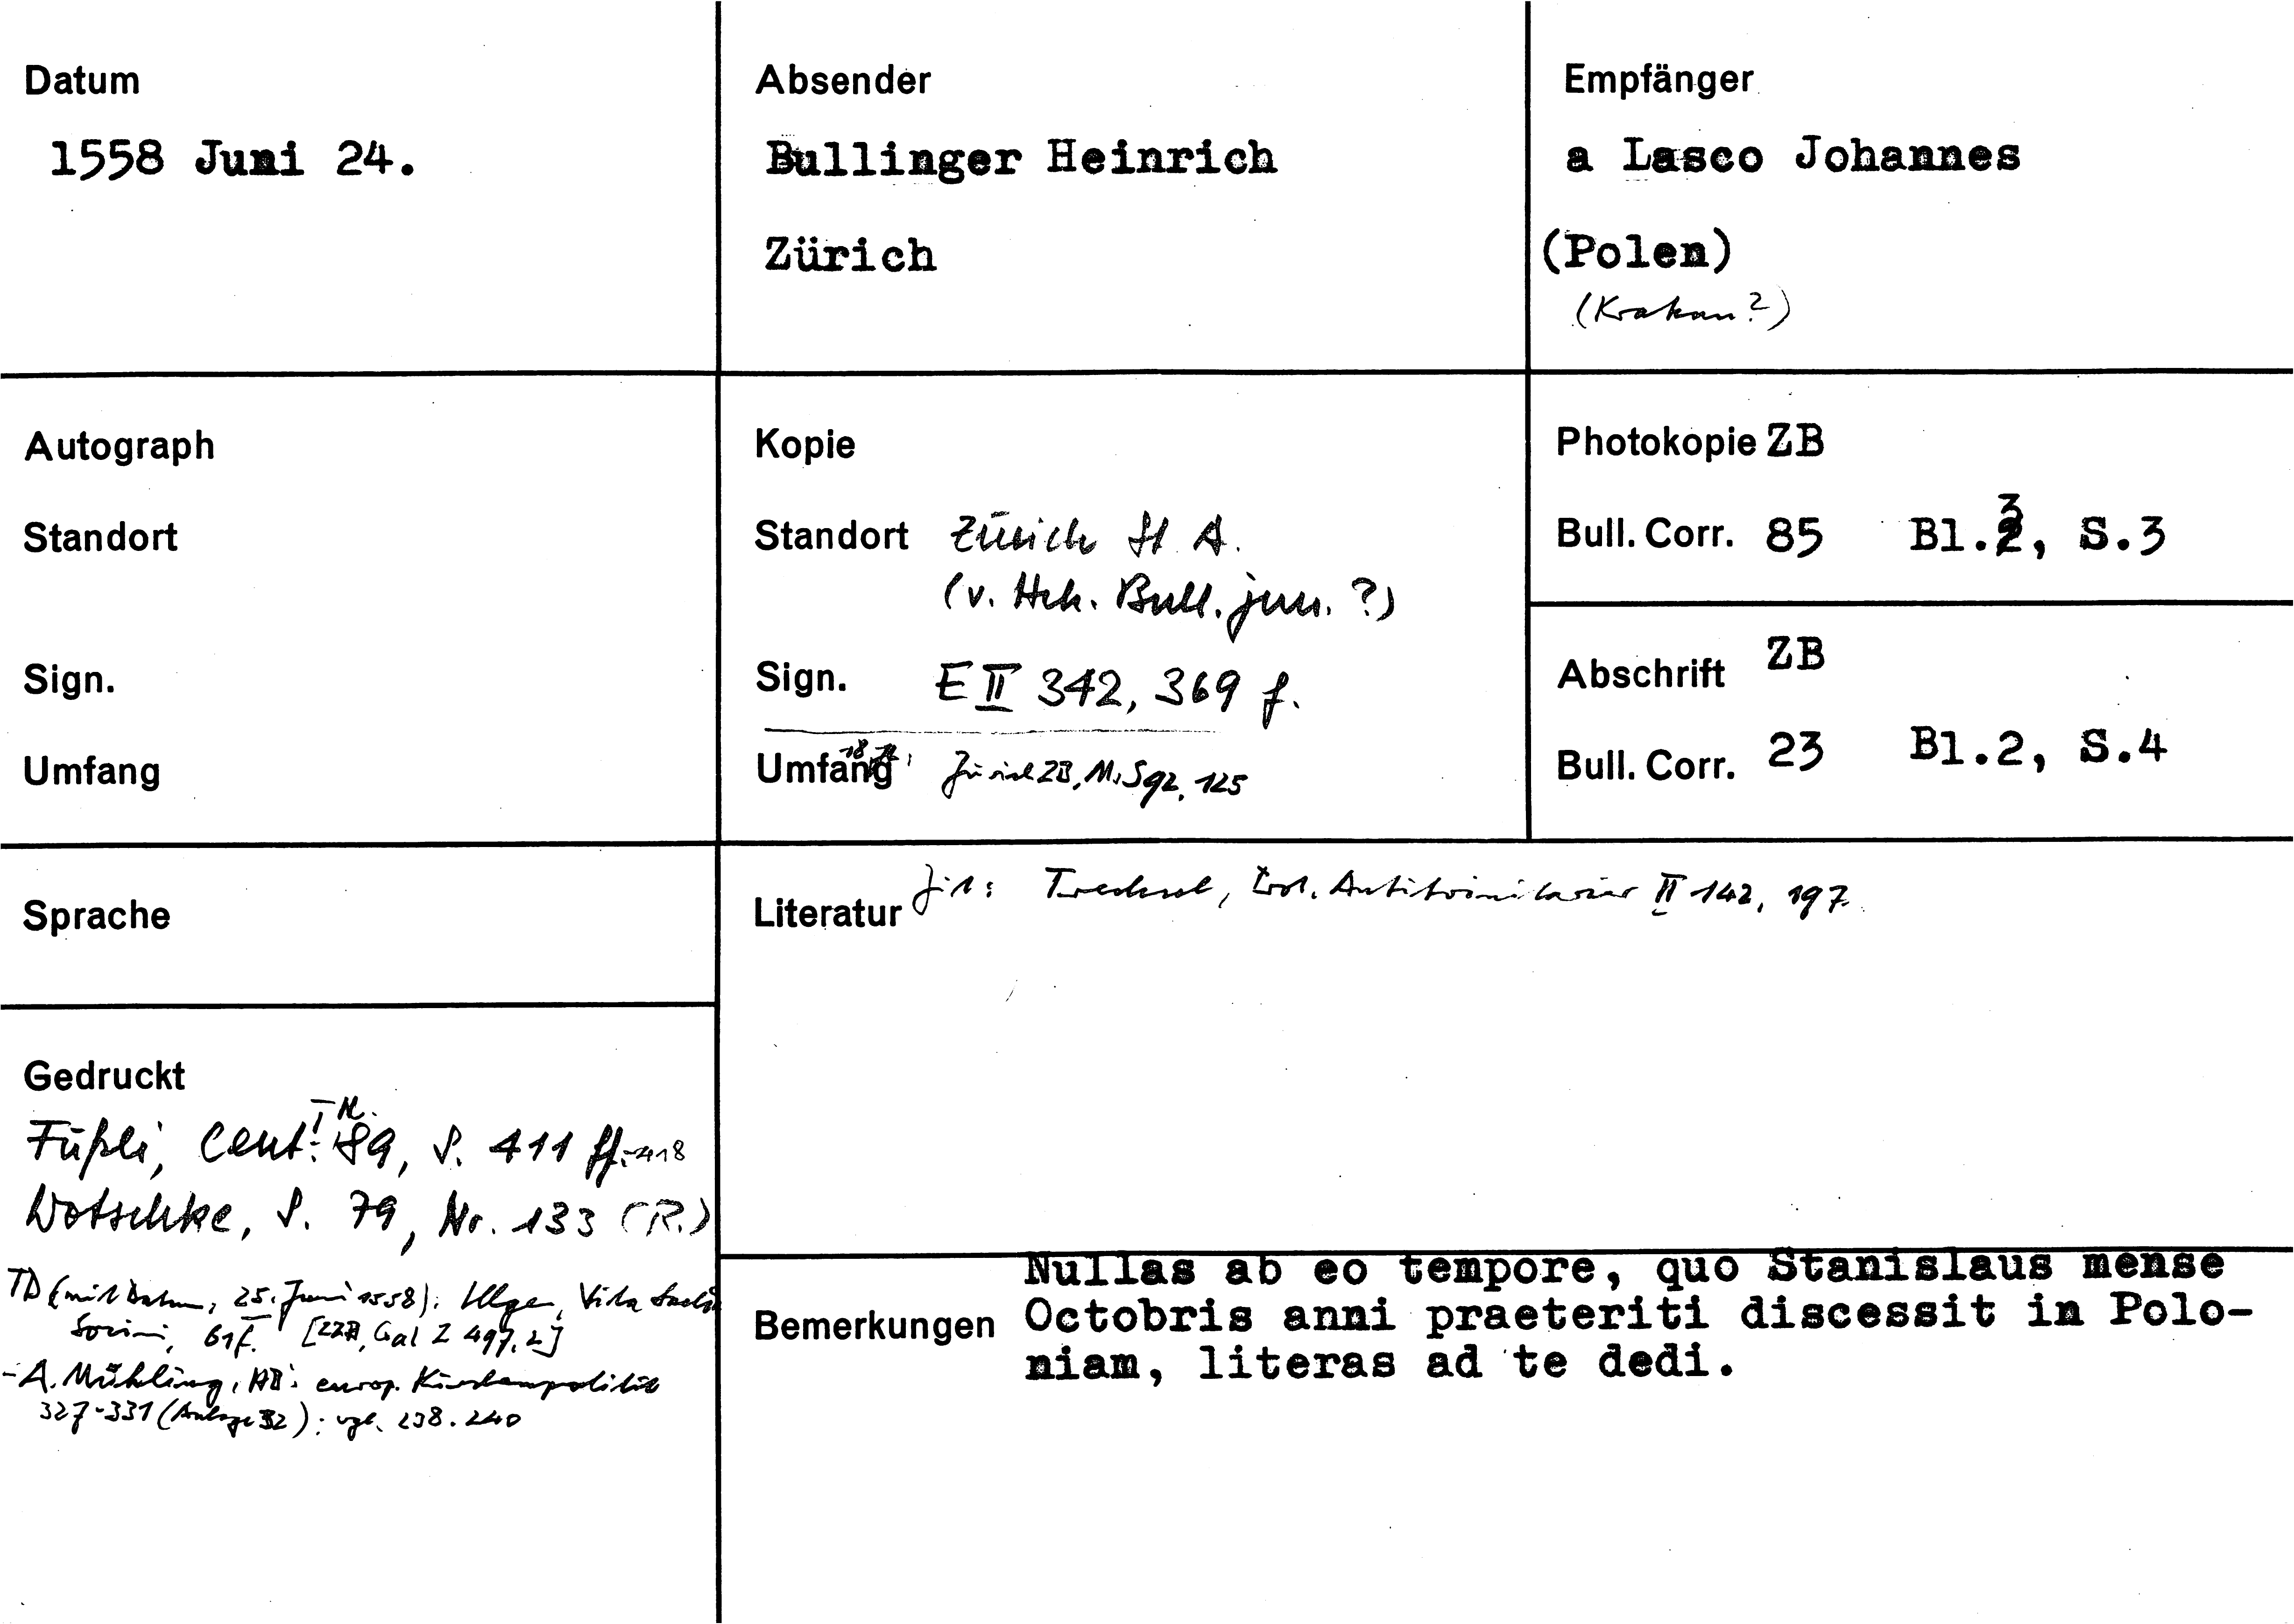 Datum
1558 Juni 24.
Absender
Bullinger Heinrich
Zürich
Empfänger
a Lasco Johannes
(Polen)
(Krakau?)
Autograph
Standort
Sign.
Umfang
Kopie
Standort Zürich St A.
(v. Hch. Bull. jun. ?)
Sign. E II 342, 369 f.
Umfang Zürich ZB, Ms S 92, 125
Photokopie ZB
Bull. Corr. 85 Bl.3, S.3
Abschrift ZB
Bull. Corr. 23 Bl.2, S.4
Sprache
Literatur Zit: Trechsel, Prot. Antitrinitarier II 142, 197.
Gedruckt
Füßli, Cent. I 89, S. 411 ff.-418
Wotschke, S. 79, Nr. 133 (R.)
TD (mit Datum, 25. Juni 1558): Illgen, Vita Laelii
Socini, 61f. [ZZB, Gal Z 497,2]
- A. Mühling, HB's europ. Kirchenpolitik
327-331 (Anlage 32); vgl. 238. 240
Bemerkungen
Nullas ab eo tempore, quo Stanislaus mense
Octobris anni praeteriti discessit in Polo-
niam, literas ad te dedi.